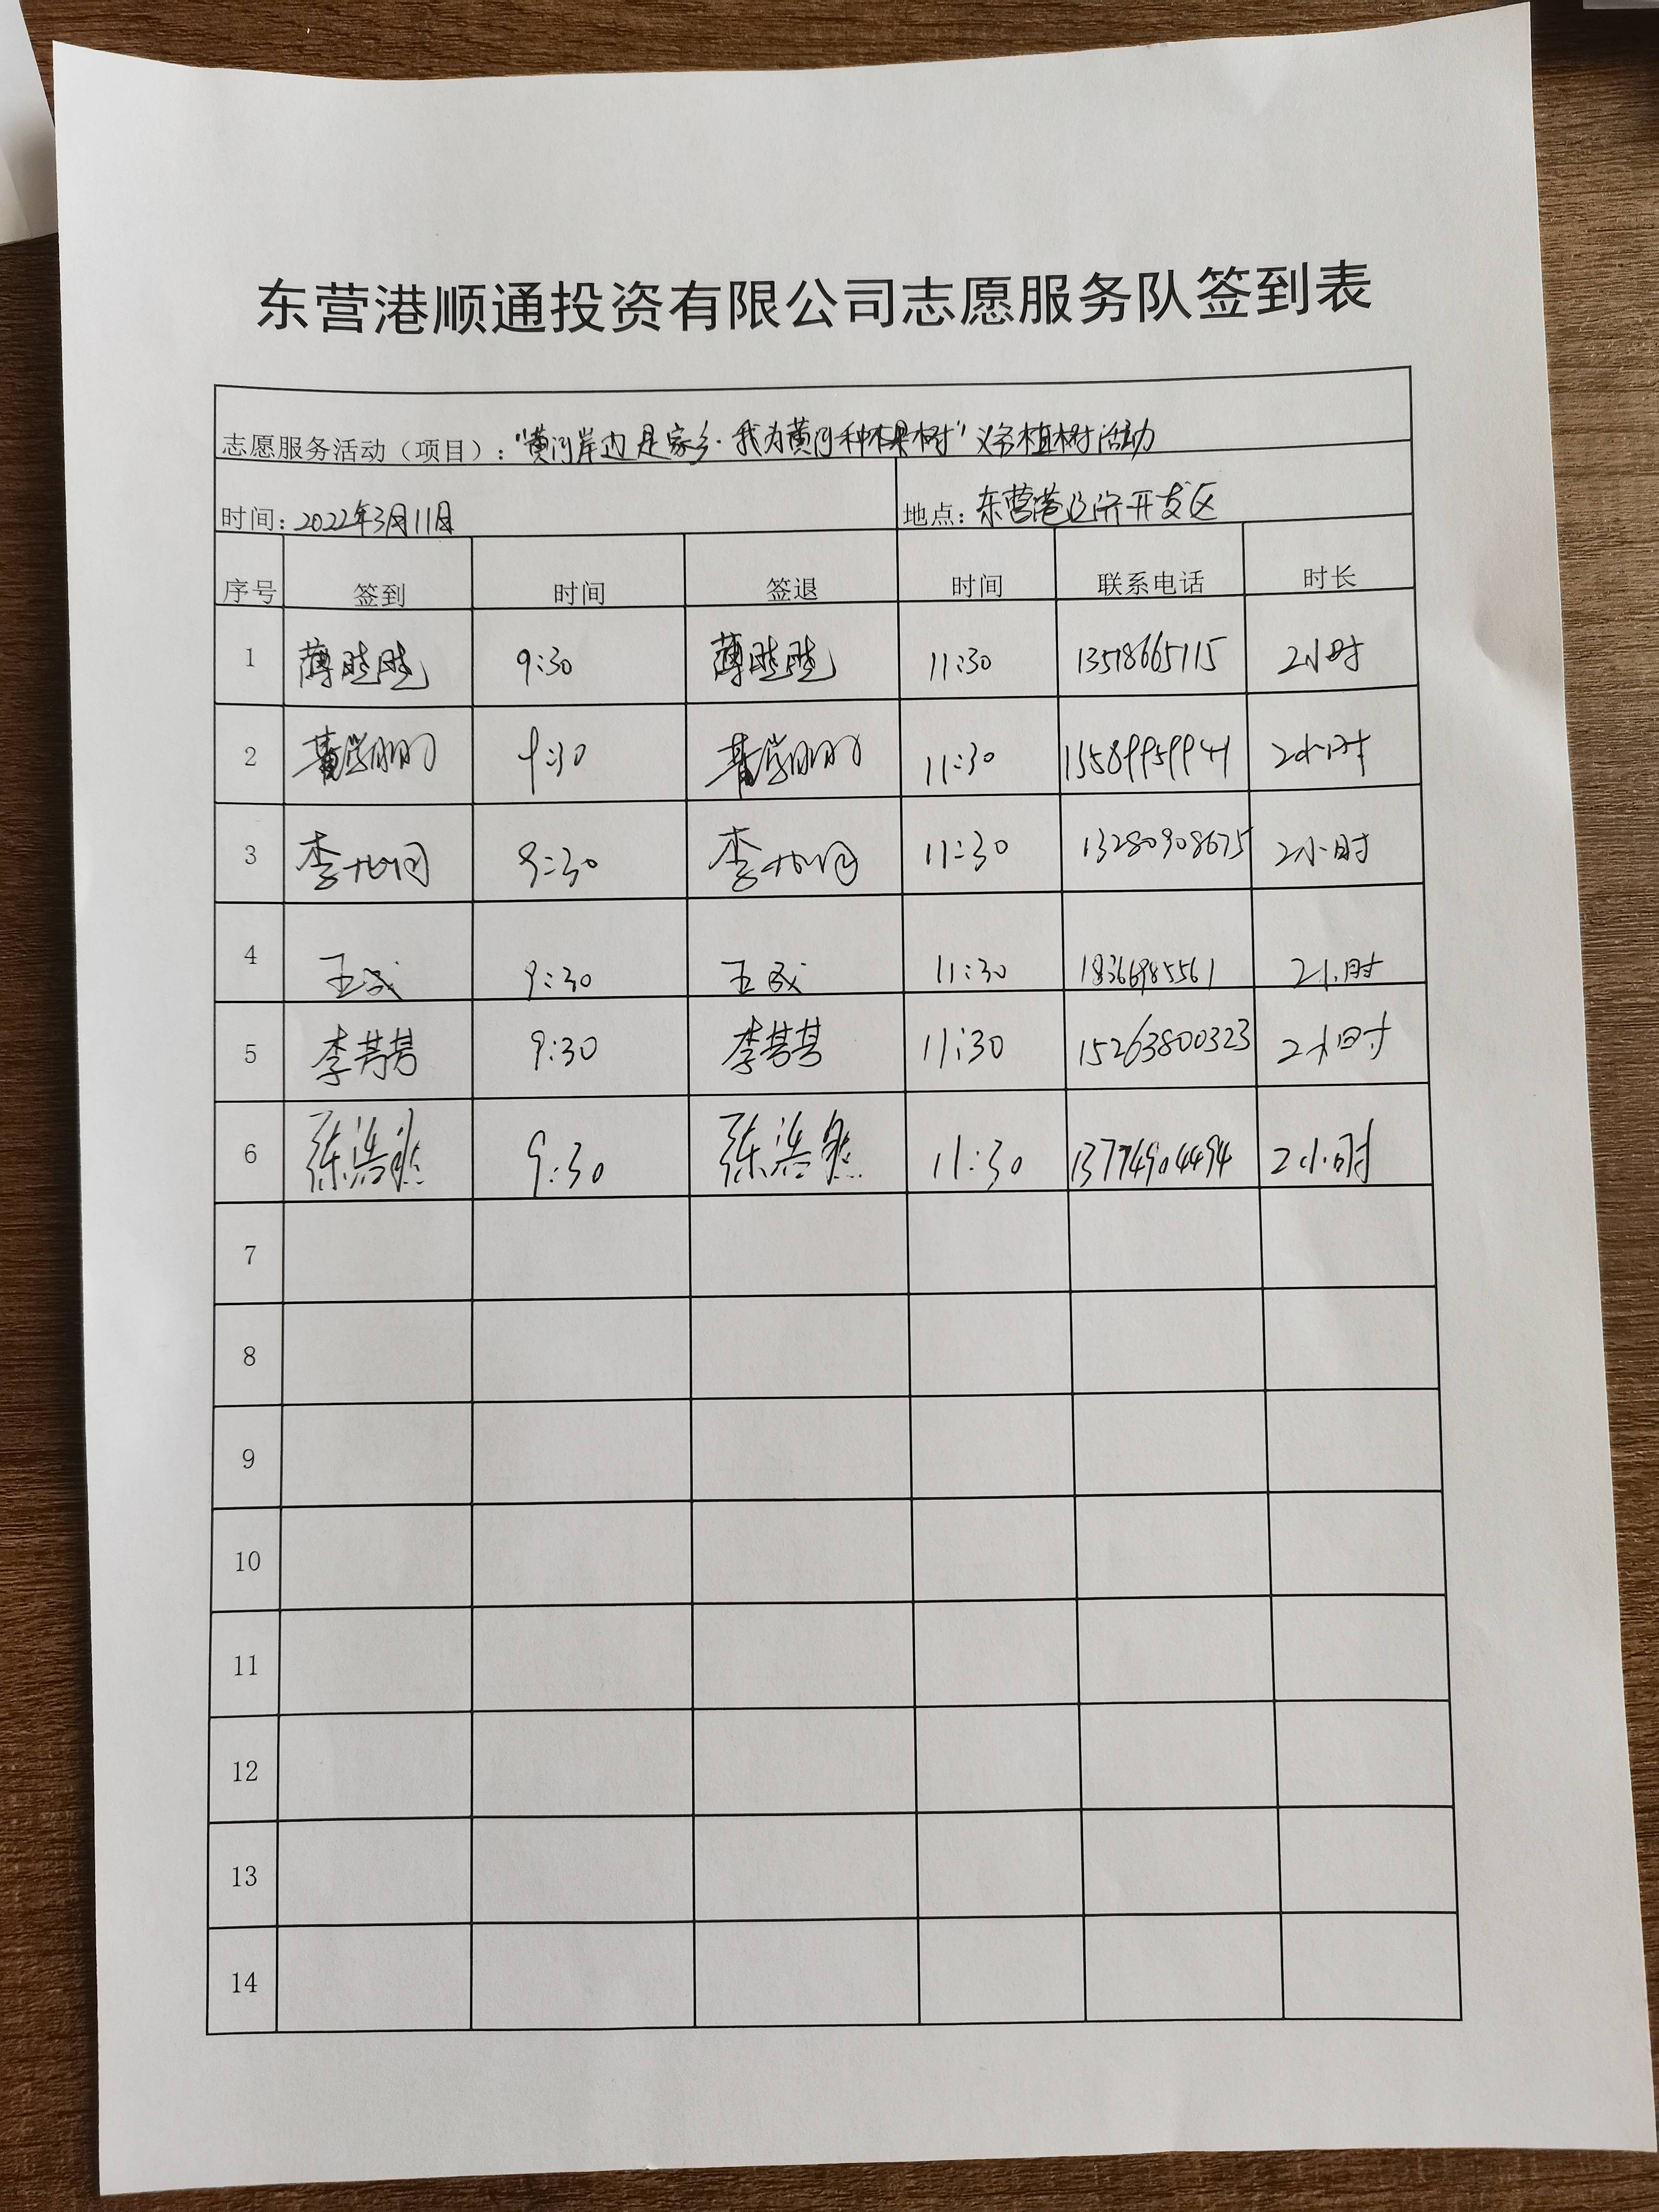 东营港顺通投资有限公司志愿服务队签到表
志愿服务活动（项目）：“黄河岸边是家乡·我为黄河种棵树”义务植树活动
时间：2022年3月11日 地点：东营港经济开发区
序号 签到 时间 签退 时间 联系电话 时长
1 薄 9:30 薄 11:30 13518665115 2小时
2 9:30 11:30 13589959941 2小时
3 李 9:30 李 11:30 13280908675 2小时
4 王成 9:30 王成 11:30 2小时
5 李 9:30 李 11:30 15263800323 2小时
6 张浩然 9:30 张浩然 11:30 13774904494 2小时
7
8
9
10
11
12
13
14